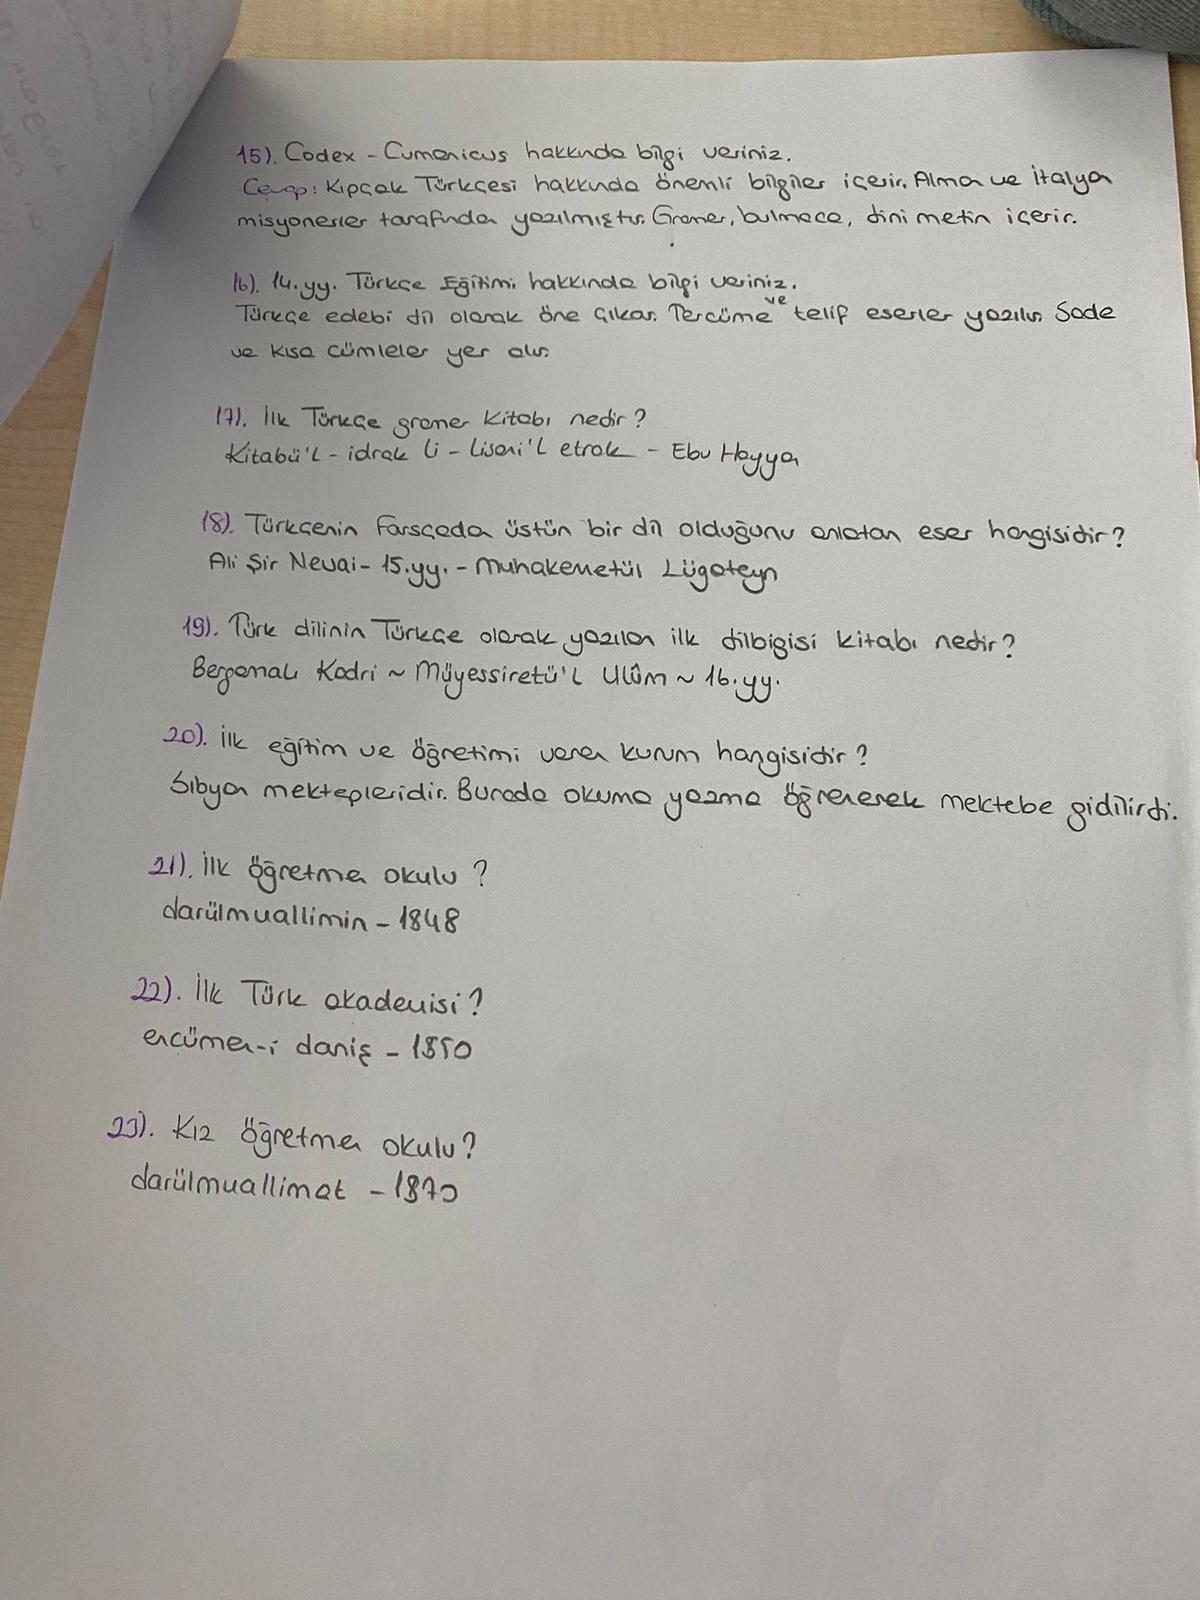 15). Codex - Cumanicus hakkında bilgi veriniz.
Cevap: Kıpçak Türkçesi hakkında önemli bilgiler içerir. Alman ve İtalyan
misyonerler tarafından yazılmıştır. Gramer, bulmaca, dini metin içerir.
16). 14.yy. Türkçe Eğitimi hakkında bilgi veriniz.
Türkçe edebi dil olarak öne çıkar. Tercüme ve telif eserler yazılır. Sade
ve kısa cümleler yer alır.
17). İlk Türkçe gramer kitabı nedir?
Kitabü'l - idrak li - Lisani'l etrak - Ebu Hayyan
18). Türkçenin Farsçadan üstün bir dil olduğunu anlatan eser hangisidir?
Ali Şir Nevai - 15.yy. - Muhakemetül Lügateyn
19). Türk dilinin Türkçe olarak yazılan ilk dilbigisi kitabı nedir?
Bergamalı Kadri ~ Müyessiretü'l Ulûm ~ 16.yy.
20). İlk eğitim ve öğretimi veren kurum hangisidir?
Sıbyan mektepleridir. Burada okuma yazma öğrenerek mektebe gidilirdi.
21). İlk öğretmen okulu ?
darülmuallimin - 1848
22). İlk Türk akademisi?
encümen-i daniş - 1850
23). Kız öğretmen okulu?
darülmuallimat - 1870